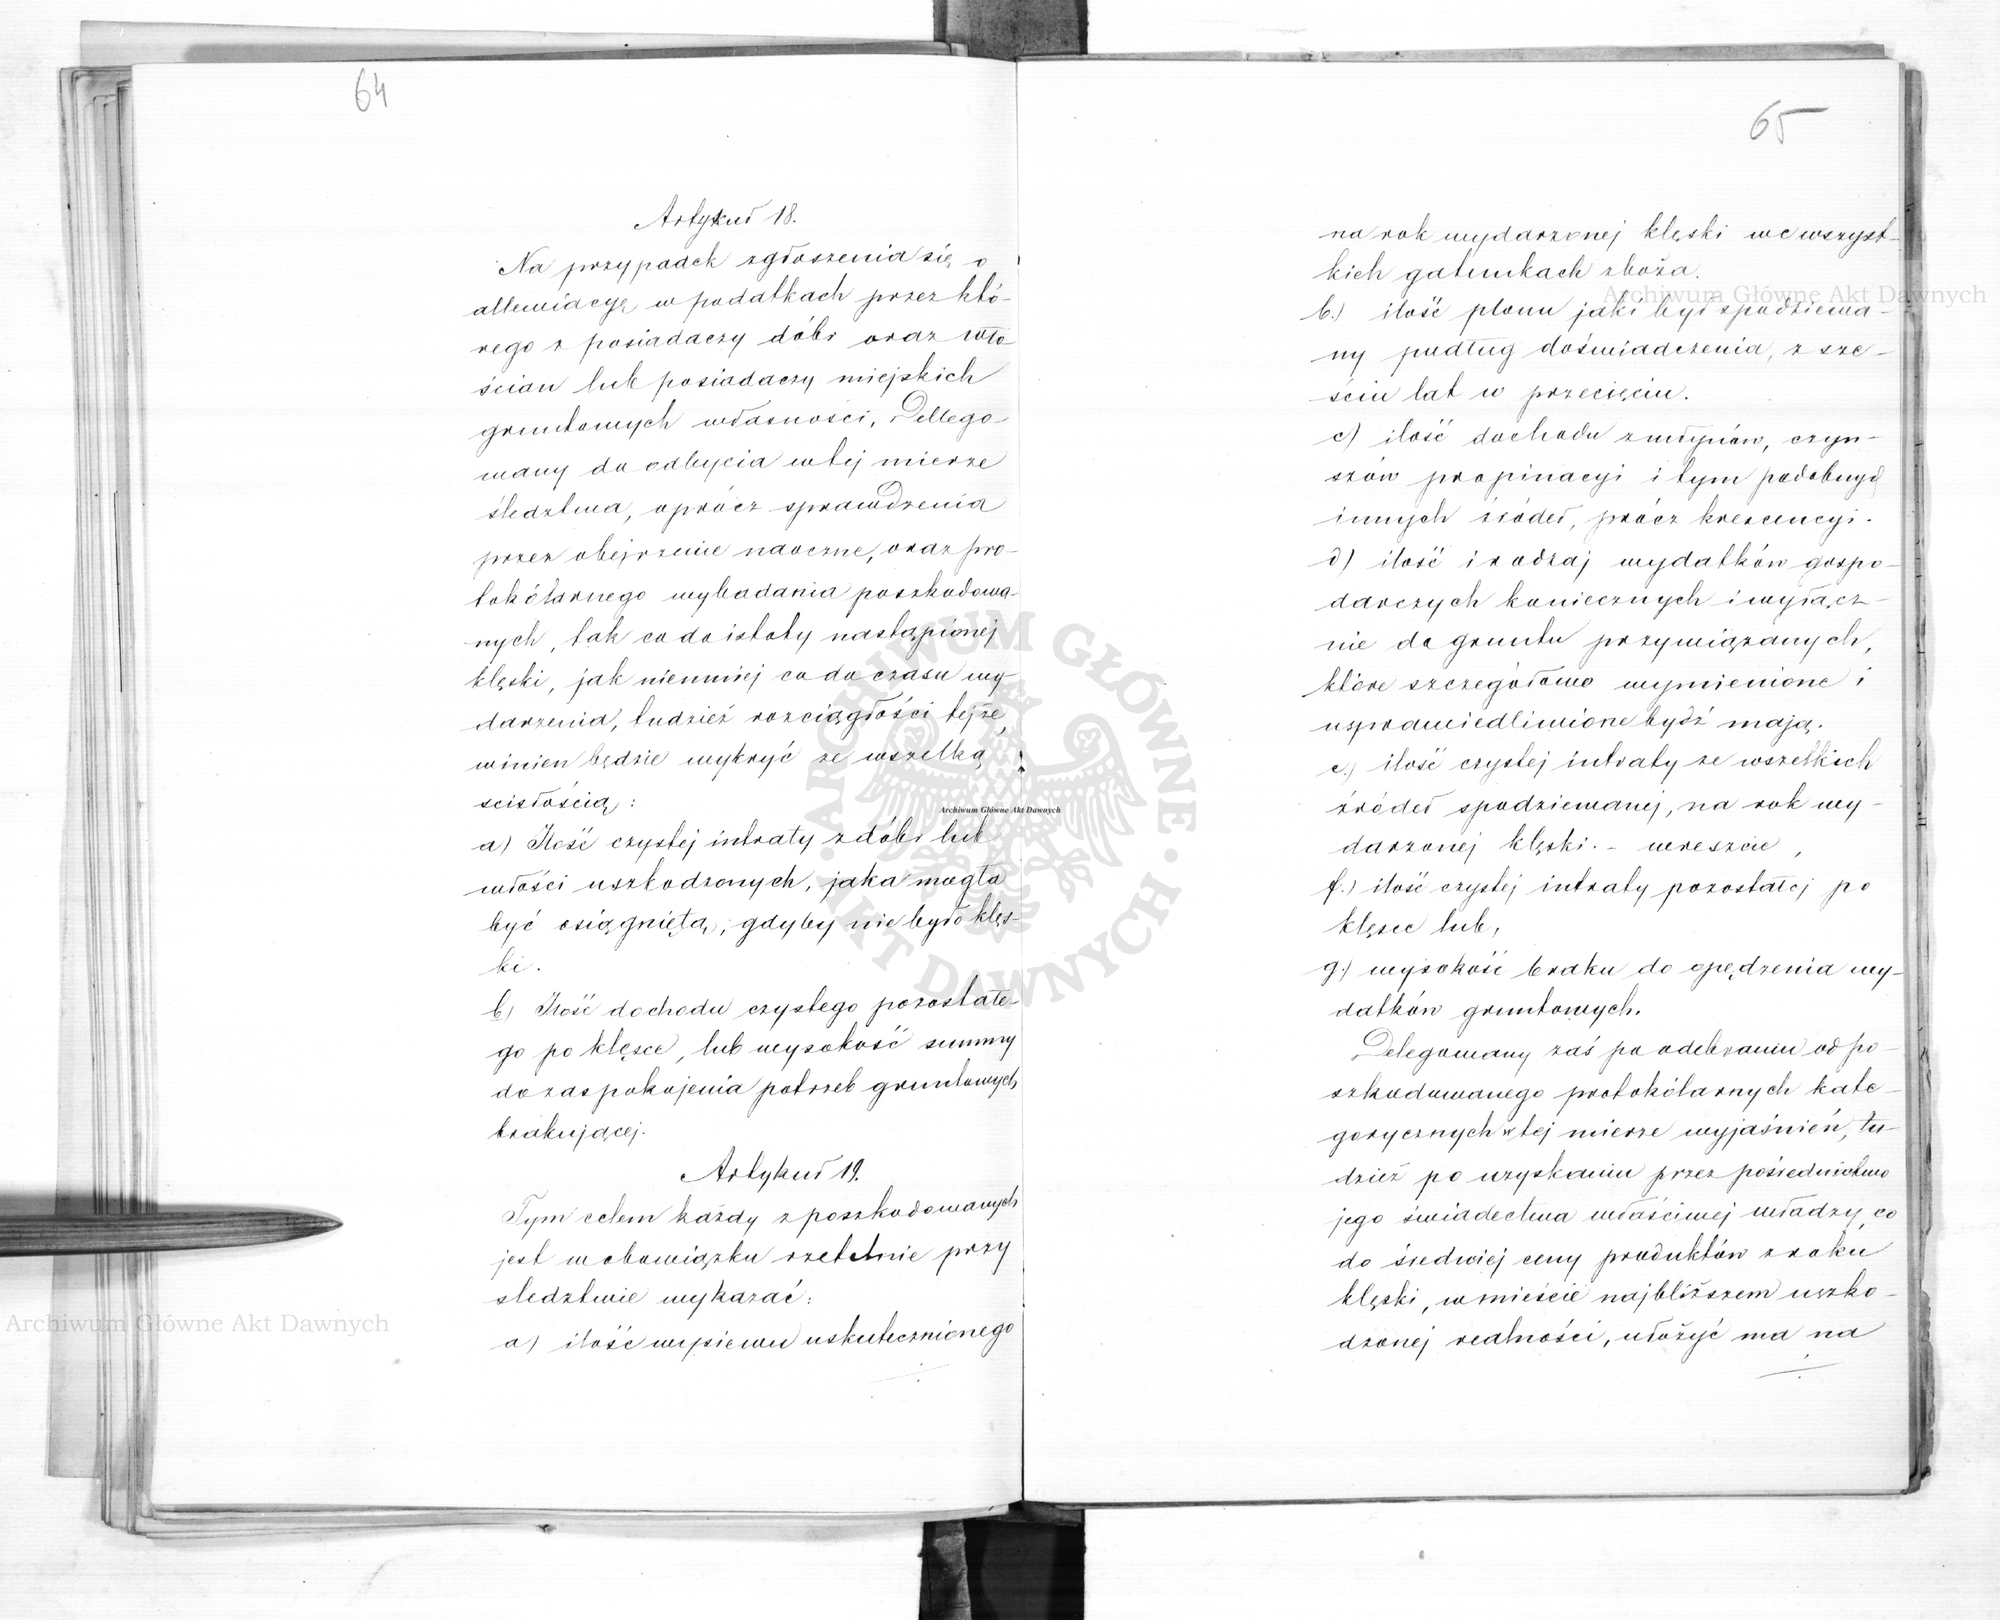 64
Artykuł 18.
Na przypadek zgłoszenia się o
allewiacyę w podatkach przez któ-
rego z posiadaczy dóbr oraz wło-
ścian lub posiadaczy miejskich
gruntowych własności, Dellego-
wany do odbycia w tej mierze
śledztwa, oprócz sprawdzenia
przez obejrzenie naoczne, oraz pro-
tokólarnego wybadania poszkodowa-
nych, tak co do istoty nastąpionej
klęski, jak niemniej co do czasu wy-
darzenia, tudzież rozciągłości tejże,
winien będzie wykryć ze wszelką
scisłością:
a) Ilość czystej intraty z dóbr lub
włości uszkodzonych, jaka mogła
być osiągniętą, gdyby nie było klęs-
ki.
b) Ilość dochodu czystego pozostałe-
go po klęsce, lub wysokość summy
do zaspokojenia potrzeb gruntowych
brakującej.
Artykuł 19.
Tym celem każdy z poszkodowanych
jest w obowiązku rzetelnie przy
sledztwie wykazać:
a) ilość wysiewu uskutecznionego
65
na rok wydarzonej klęski we wszyst-
kich gatunkach zboża.
b.) ilość plonu jaki był spodziewa-
ny podług doświadczenia, z sze-
ściu lat w przecięciu.
c) ilość dochodu z młynów, czyn-
szów propinacyi i tym podobnych
innych źródeł, prócz krescencyi.
d) ilość i rodzaj wydatków gospo-
darczych koniecznych i wyłącz-
nie do gruntu przywiązanych,
które szczegółowo wymienione i
usprawiedliwione bydź mają.
e.) ilość czystej intraty ze wszelkich
źródeł spodziewanej, na rok wy-
darzonej klęski. - wreszcie,
f.) ilość czystej intraty pozostałej po
klęsce lub,
g.) wysokość braku do opędzenia wy-
datków gruntowych.
Delegowany zaś po odebraniu od po-
szkodowanego protokólarnych kate-
gorycznych w tej mierze wyjaśnień, tu-
dzież po uzyskaniu przez pośrednictwo
jego świadectwa właściwej władzy, co
do średniej ceny produktów z roku
klęski, w mieście najbliższem uszko-
dzonej realności, ułożyć ma na
Archiwum Główne Akt Dawnych
Archiwum Główne Akt Dawnych
Archiwum Główne Akt Dawnych
ARCHIWUM GŁÓWNE AKT DAWNYCH